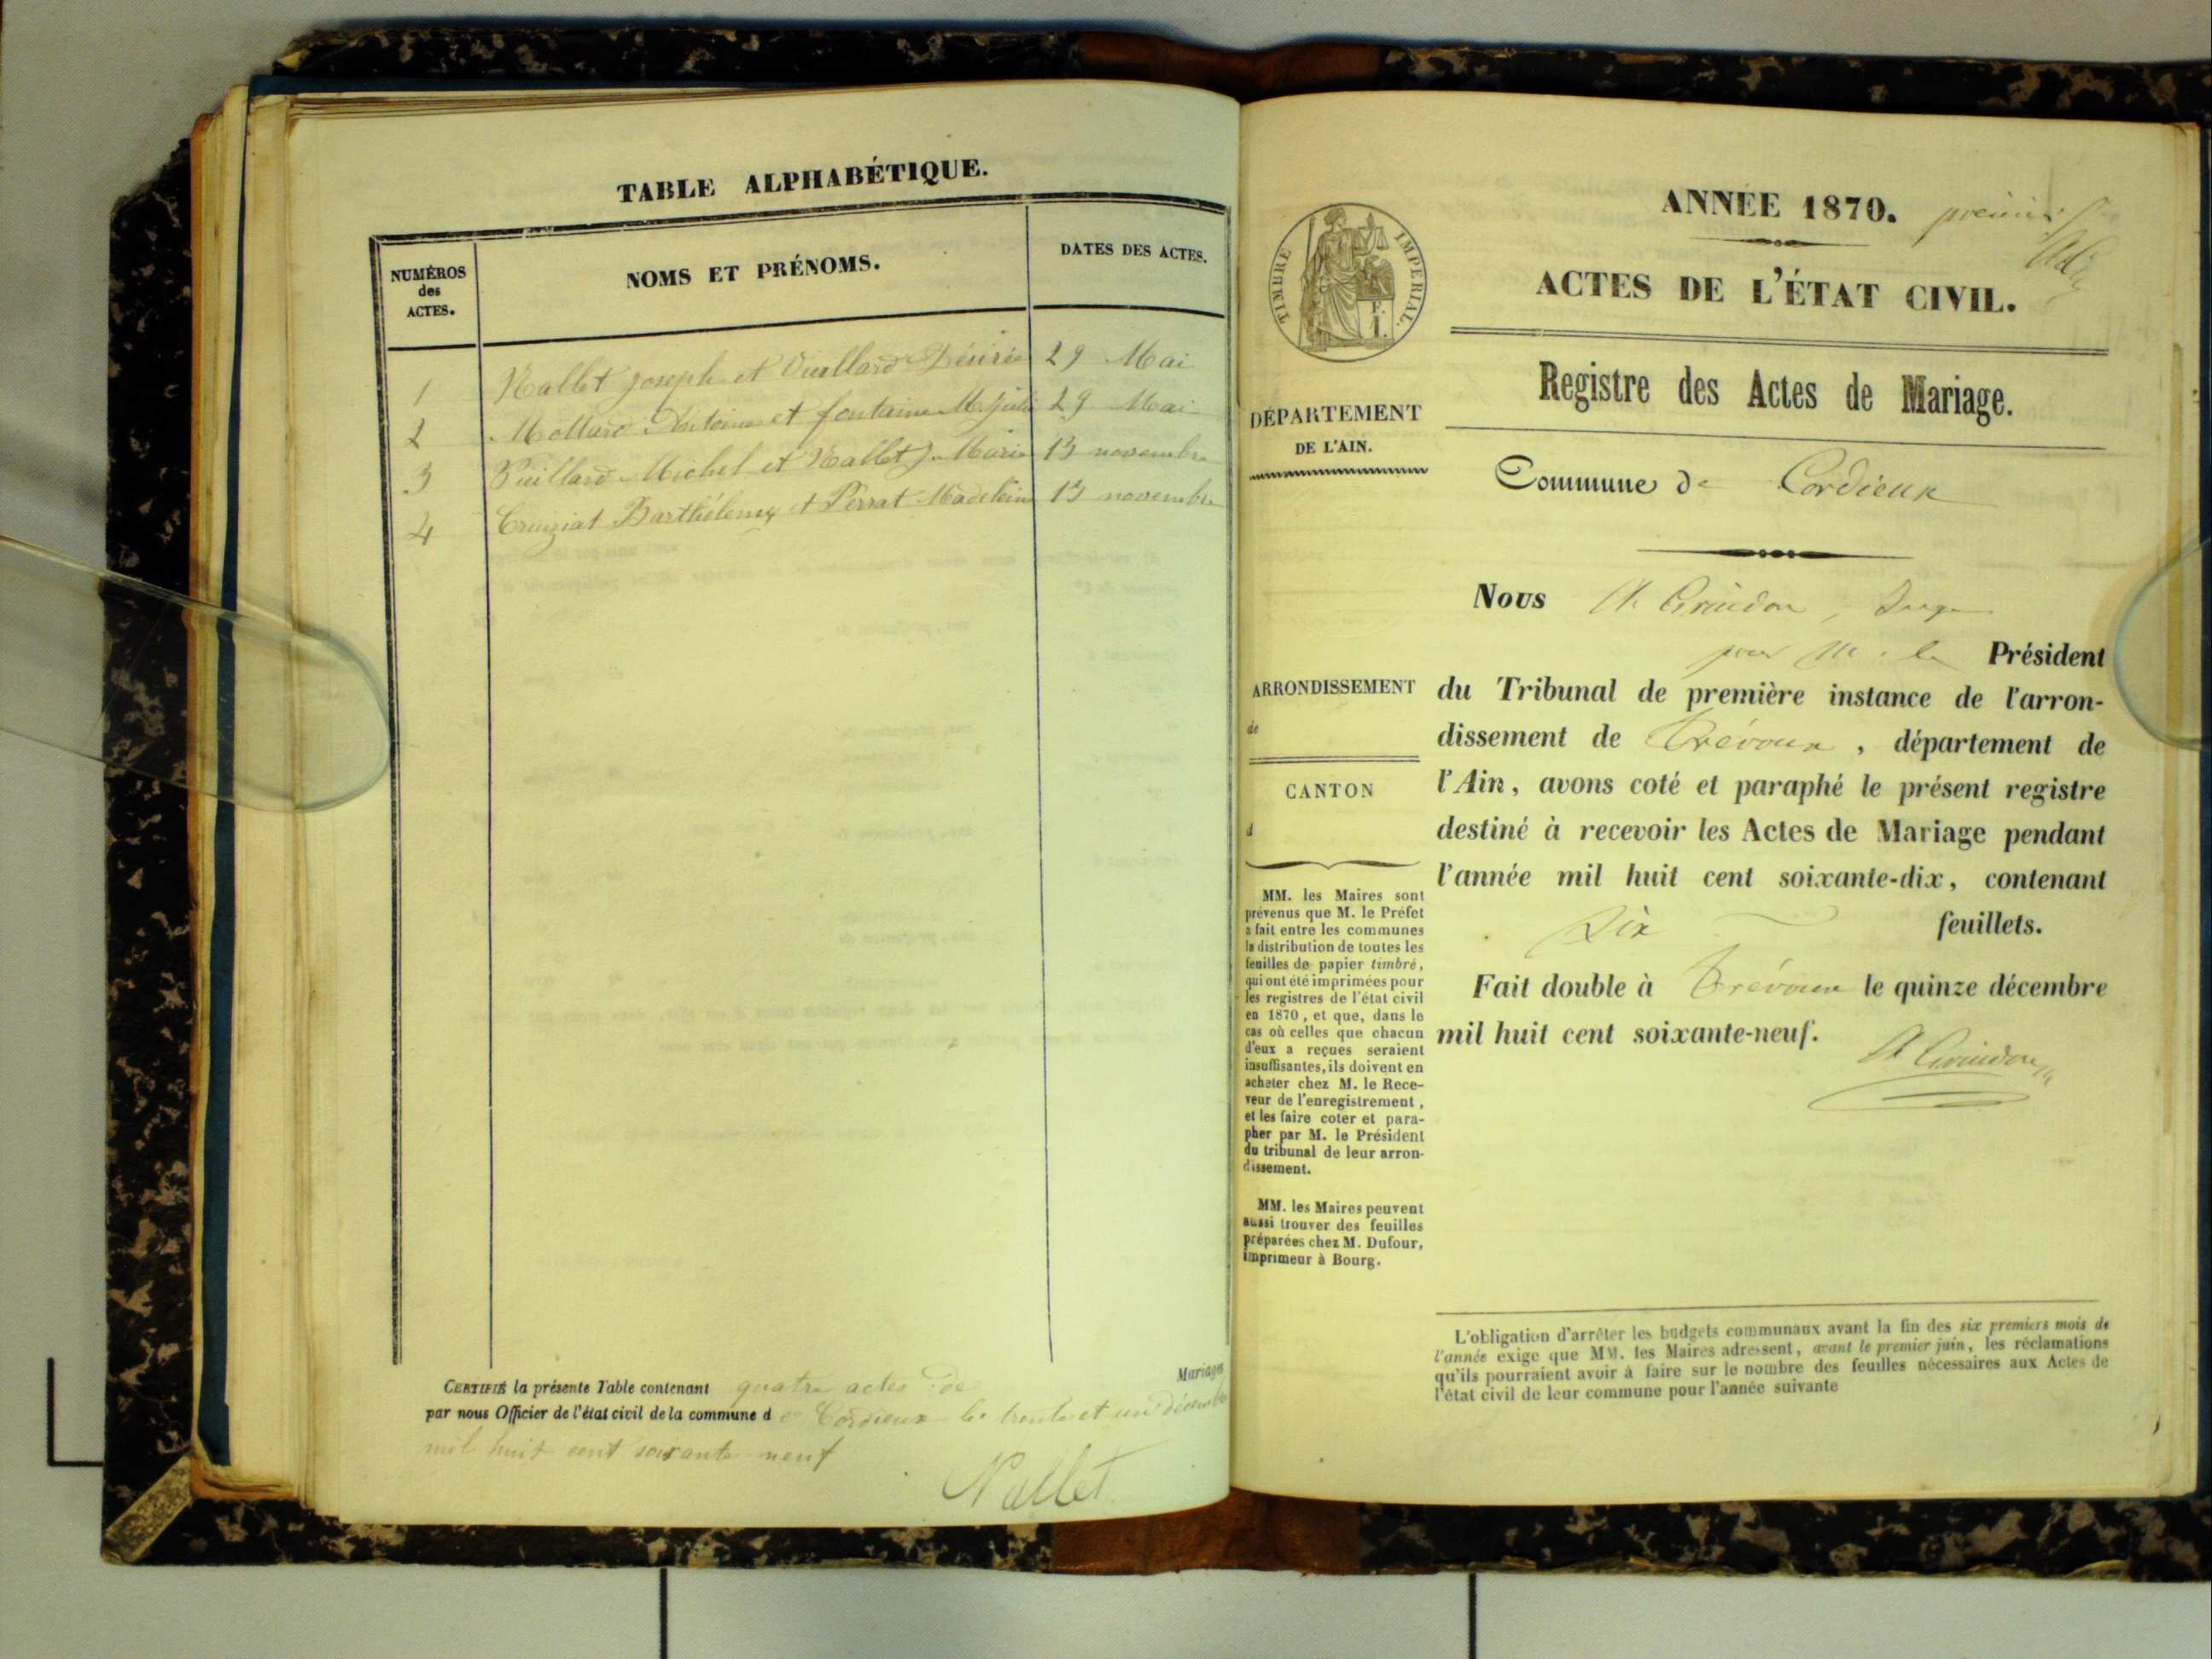 TABLE ALPHABÉTIQUE.
NUMÉROS
des
ACTES.
NOMS ET PRÉNOMS.
DATES DES ACTES.
1 Nallet Joseph et Vuillard Désirée 29 Mai
2 Mollard Antoine et fontaine 29 Mai
3 Vuillard Michel et Nallet J. Marie 13 novembre
4 Cruiziat Barthélemy et Perrat Madeleine 13 novembre
Mariages
CERTIFIÉ la présente Table contenant quatre actes de
par nous Officier de l'état civil de la commune de Cordieux le trente et un décembre
mil huit cent soixante neuf
Nallet
ANNÉE 1870. premier
ACTES DE L'ÉTAT CIVIL.
TIMBRE IMPÉRIAL.
Registre des Actes de Mariage.
DÉPARTEMENT
DE L'AIN.
Commune de Cordieux
Nous Juge
pour M. le Président
ARRONDISSEMENT
de
CANTON
d
du Tribunal de première instance de l'arron-
dissement de Trévoux, département de
l'Ain, avons coté et paraphé le présent registre
destiné à recevoir les Actes de Mariage pendant
l'année mil huit cent soixante-dix, contenant
feuillets.
Fait double à Trévoux le quinze décembre
mil huit cent soixante-neuf.
MM. les Maires sont
prévenus que M. le Préfet
a fait entre les communes
la distribution de toutes les
feuilles de papier timbré,
qui ont été imprimées pour
les registres de l'état civil
en 1870, et que, dans le
cas où celles que chacun
d'eux a reçues seraient
insuffisantes, ils doivent en
acheter chez M. le Rece-
veur de l'enregistrement,
et les faire coter et para-
pher par M. le Président
du tribunal de leur arron-
dissement.
MM. les Maires peuvent
aussi trouver des feuilles
préparées chez M. Dufour,
imprimeur à Bourg.
L'obligation d'arrêter les budgets communaux avant la fin des six premiers mois de
l'année exige que MM. les Maires adressent, avant le premier juin, les réclamations
qu'ils pourraient avoir à faire sur le nombre des feuilles nécessaires aux Actes de
l'état civil de leur commune pour l'année suivante